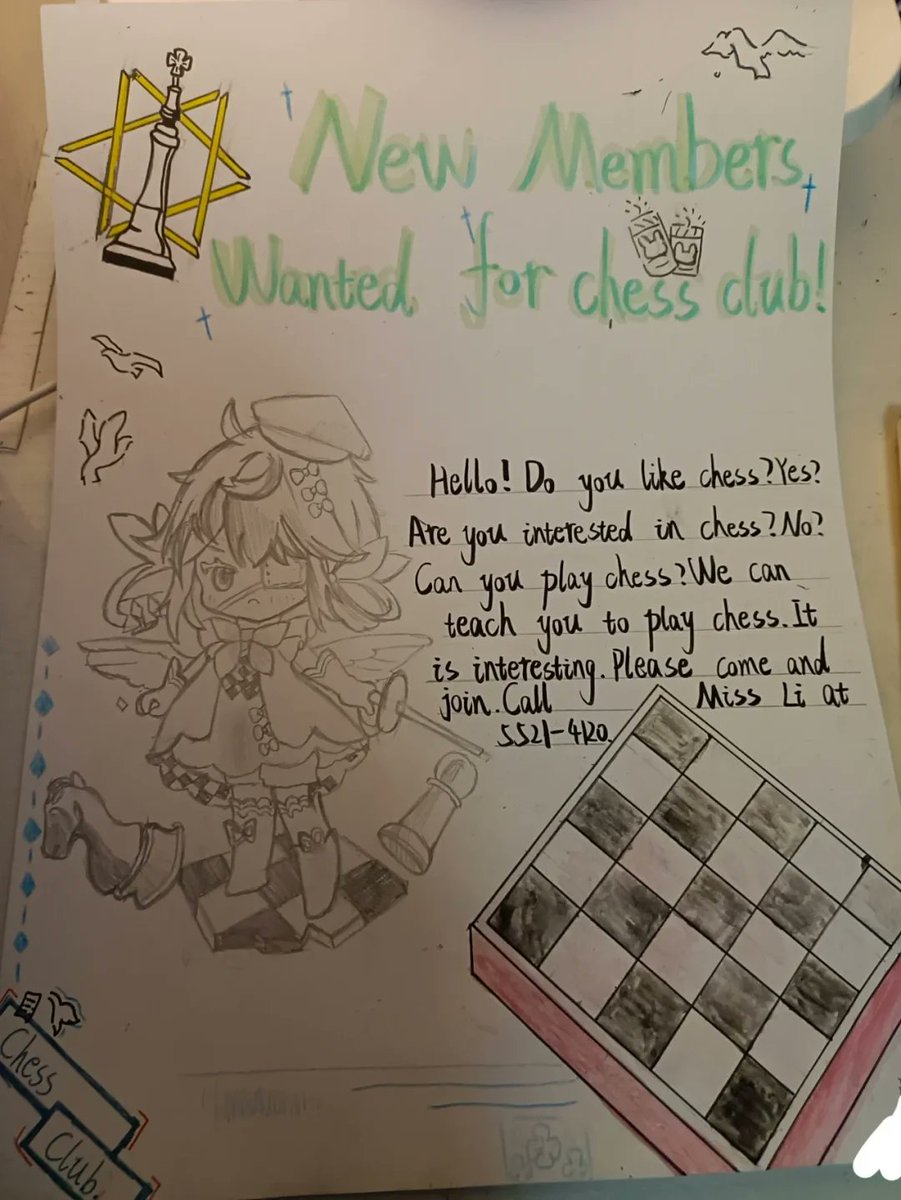 New Members
Wanted for chess club!
Hello! Do you like chess?Yes?
Are you interested in chess?No?
Can you play chess?We can
teach you to play chess.It
is interesting.Please come and
join.Call Miss Li at
5521-4120.
Chess
Club.